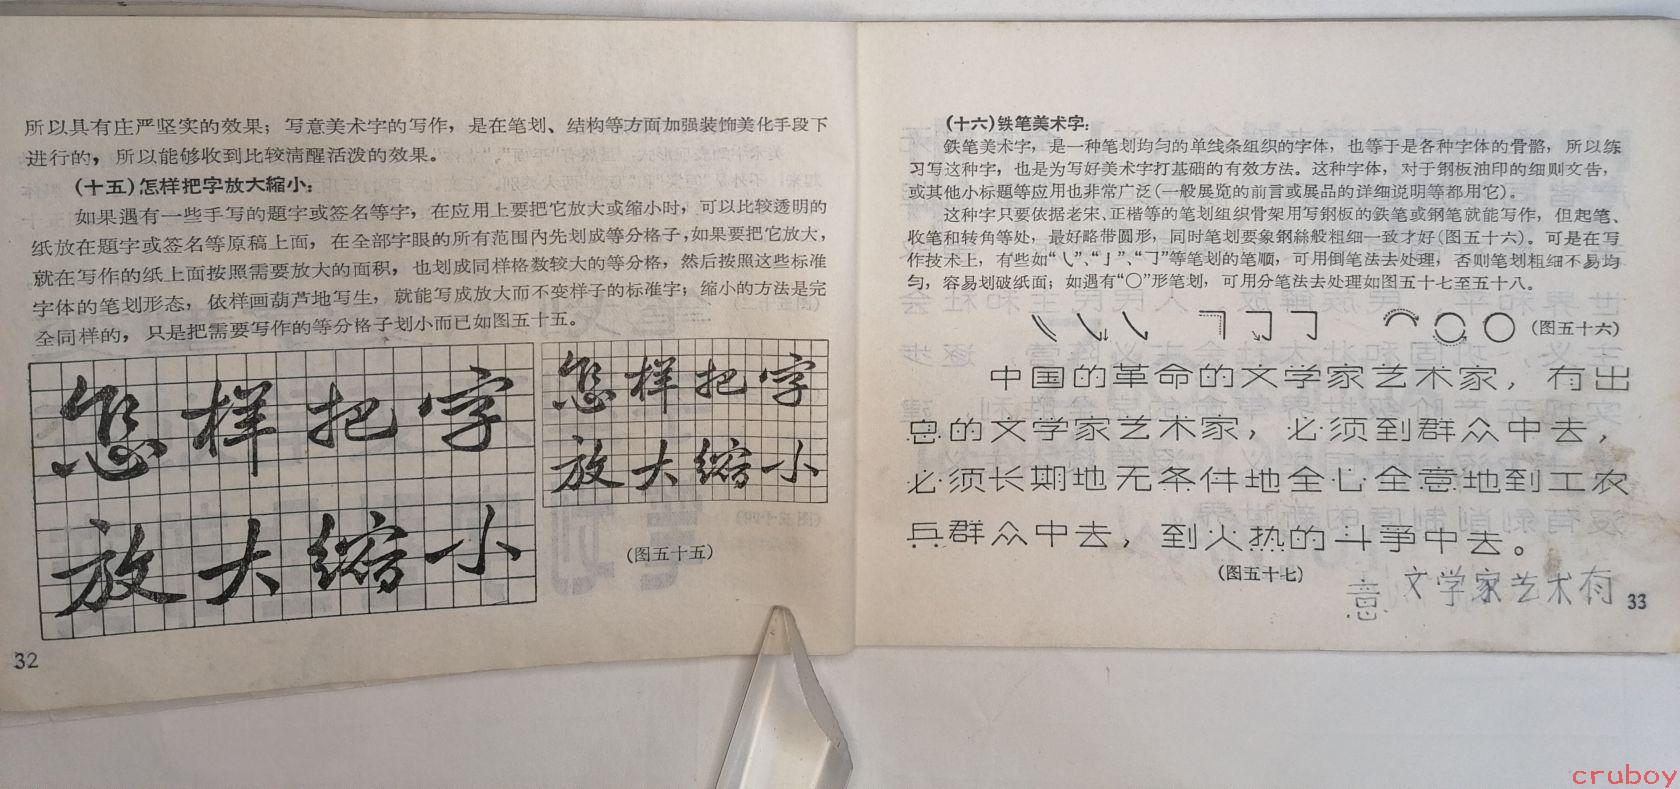 所以具有庄严坚实的效果；写意美术字的写作，是在笔划、结构等方面加强装饰美化手段下
进行的，所以能够收到比较清醒活泼的效果。
（十五）怎样把字放大縮小：
如果遇有一些手写的題字或签名等字，在应用上要把它放大或缩小时，可以比较透明的
纸放在題字或签名等原稿上面，在全部字眼的所有范围内先划成等分格子，如果要把它放大，
就在写作的纸上面按照需要放大的面积，也划成同样格数较大的等分格，然后按照这些标准
字体的笔划形态，依样画葫芦地写生，就能写成放大而不变样子的标准字；缩小的方法是完
全同样的，只是把需要写作的等分格子划小而已如图五十五。
怎样把字
放大缩小
怎样把字
放大缩小
（图五十五）
32
（十六）铁笔美术字：
鉄笔美术字，是一种笔划均匀的单线条组织的字体，也等于是各种字体的骨骼，所以练
习写这种字，也是为写好美术字打基础的有效方法。这种字体，对于钢板油印的细则文告，
或其他小标题等应用也非常广泛（一般展览的前言或展品的详细说明等都用它）。
这种字只要依据老宋、正楷等的笔划组织骨架用写钢板的鉄笔或钢笔就能写作，但起笔、
收笔和转角等处，最好略带圆形，同时笔划要象钢絲般粗细一致才好（图五十六）。可是在写
作技术上，有些如“㇏”、“亅”、“㇆”等笔划的笔顺，可用倒笔法去处理，否则笔划粗细不易均
匀，容易划破纸面；如遇有“〇”形笔划，可用分笔法去处理如图五十七至五十八。
（图五十六）
中国的革命的文学家艺术家，有出
息的文学家艺术家，必须到群众中去，
必须长期地无条件地全心全意地到工农
兵群众中去，到火热的斗争中去。
（图五十七）
意 文学家艺术有
33
cruboy